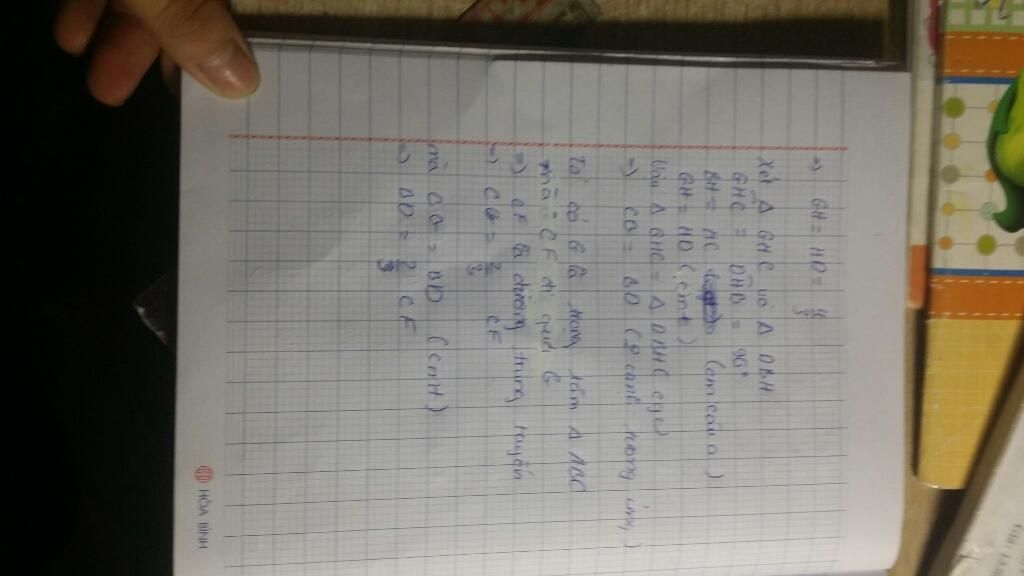 =) GH = HD = 4/3
Xét Δ GHC và Δ DBH
GHC = DHB = 90°
BH = HC (cm câu a)
GH = HD (cmt)
Vậy Δ GHC = Δ DBH ( cgc)
=) CG = BD (2 cạnh tương ứng)
Ta có G là trọng tâm Δ ABC
mà : CF đi qua G
=) CF là đường trung tuyến
=) CG = 2/3 CF
mà CG = BD (cmt)
=) BD = 2/3 CF
HÒA BÌNH